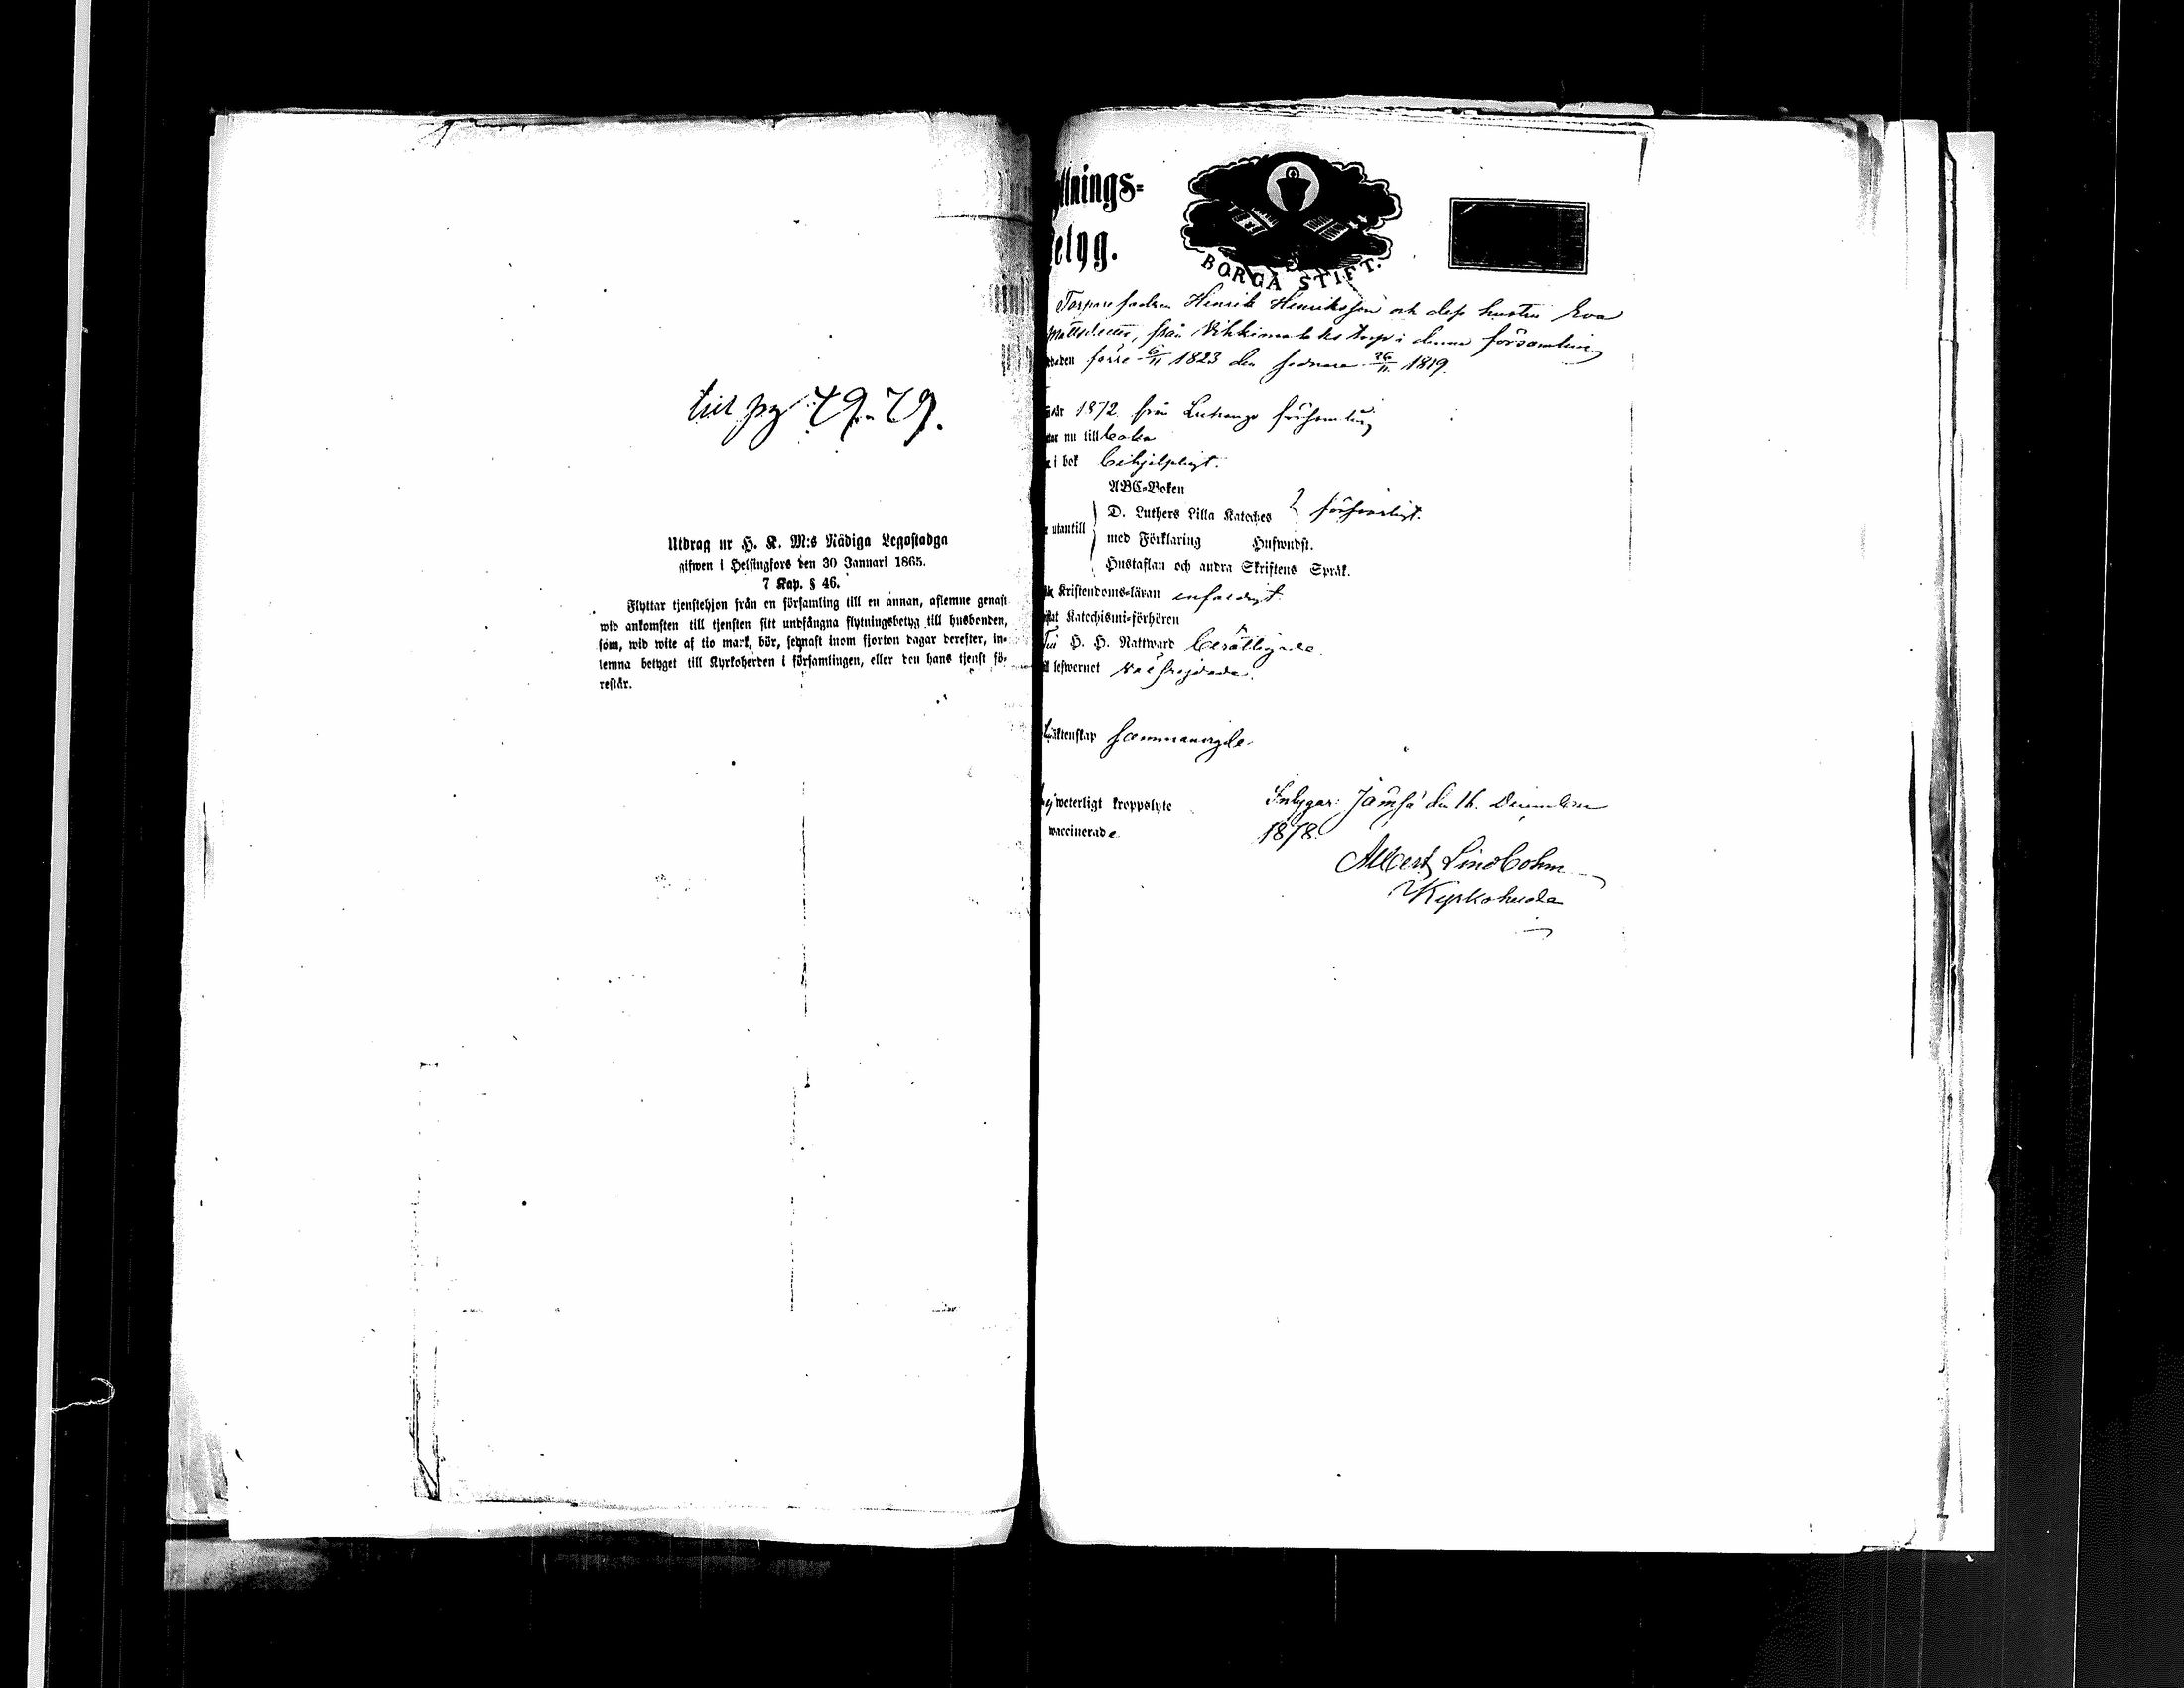 till pg 79-79.
Utdrag ur H. K. M:s Nådiga Legostadga
gifwen i Helsingfors den 30 Januari 1865.
7 Kap. § 46.
Flyttar tjenstehjon från en församling till en annan, aflemne genast
wid ankomsten till tjensten sitt undfångna flyttningsbetyg till husbonden,
som, wid wite af tio mark, bör, sednast inom fjorton dagar derefter, in-
lemna betyget till Kyrkoherden i församlingen, eller den hans tjenst fö-
restår.
ttnings-
etyg.
BORGÅ STIFT.
Torpare Henrik Henriksson och dess hustru Eva
Mattsdotter, från torp i denna församling
förre 6/11 1823 den sednare 26/11 1819.
år 1872 från församling
nu till
i bok behjelpligt.
ABC-Boken
D. Luthers Lilla Kateches försvarligt.
utantill
med Förklaring Huswudst.
Hustaflan och andra Skriftens Språk.
Kristendoms-läran enfaldigt
Katechismi-förhören
H. H. Nattward berättigade.
lefwernet välfrejdade.
äktenskap sammanvigde.
weterligt kroppslyte
waccinerade
Intygar: Jämsä den 16. December
1878.
Albert Lindbohm
Kyrkoherde